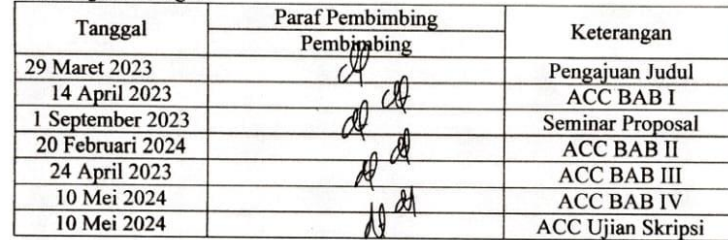 Tanggal Paraf Pembimbing Keterangan
Pembimbing
29 Maret 2023 Pengajuan Judul
14 April 2023 ACC BAB I
1 September 2023 Seminar Proposal
20 Februari 2024 ACC BAB II
24 April 2023 ACC BAB III
10 Mei 2024 ACC BAB IV
10 Mei 2024 ACC Ujian Skripsi